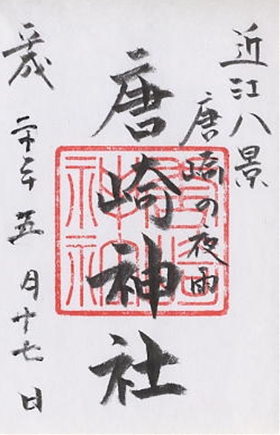 近江八景
唐崎の夜雨
唐崎神社
平成
二十年五月十七日